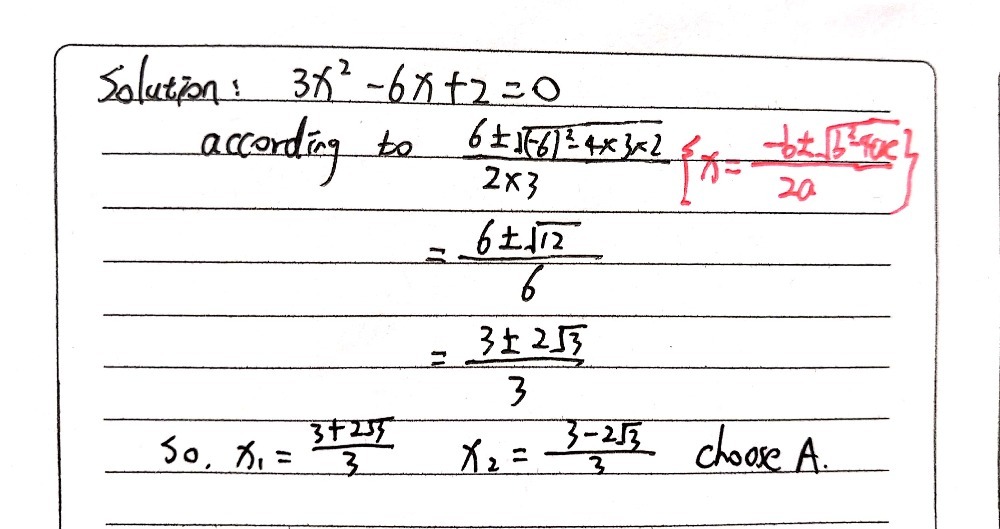 Solution: 3x² -6x+2=0
according to (6±√((-6)²-4×3×2))/(2×3) {x=(-b±√(b²-4ac))/(2a)}
= (6±√12)/6
= (3±2√3)/3
So. x₁=(3+2√3)/3 x₂=(3-2√3)/3 choose A.